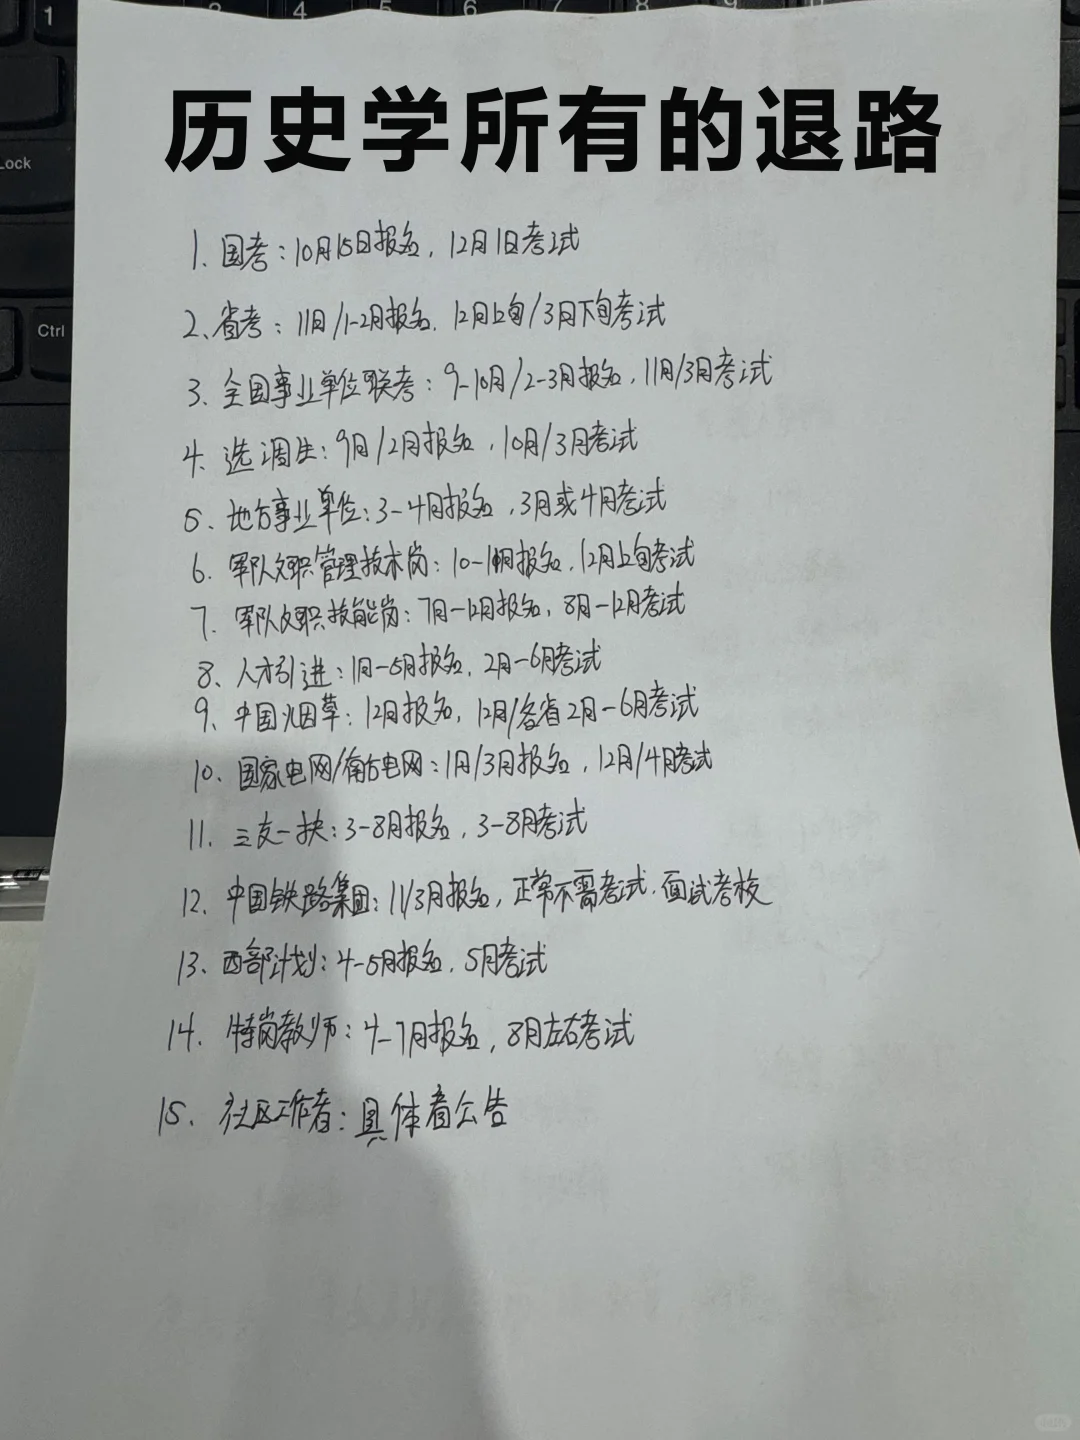 历史学所有的退路
1、国考：10月15日报名，12月1日考试
2、省考：11月/1-2月报名，12月上旬/3月下旬考试
3、全国事业单位联考：9-10月/2-3月报名，11月/3月考试
4、选调生：9月/2月报名，10月/3月考试
5、地方事业单位：3-4月报名，3月或4月考试
6、军队文职管理技术岗：10-11月报名，12月上旬考试
7、军队文职技能岗：7月-12月报名，8月-12月考试
8、人才引进：1月-5月报名，2月-6月考试
9、中国烟草：12月报名，12月/各省2月-6月考试
10、国家电网/南方电网：1月/3月报名，12月/4月考试
11、三支一扶：3-8月报名，3-8月考试
12、中国铁路集团：11/3月报名，正常不需考试，面试考核
13、西部计划：4-5月报名，5月考试
14、特岗教师：4-7月报名，8月左右考试
15、社区工作者：具体看公告
1
3
4
5
6
7
8
9
Lock
Ctrl